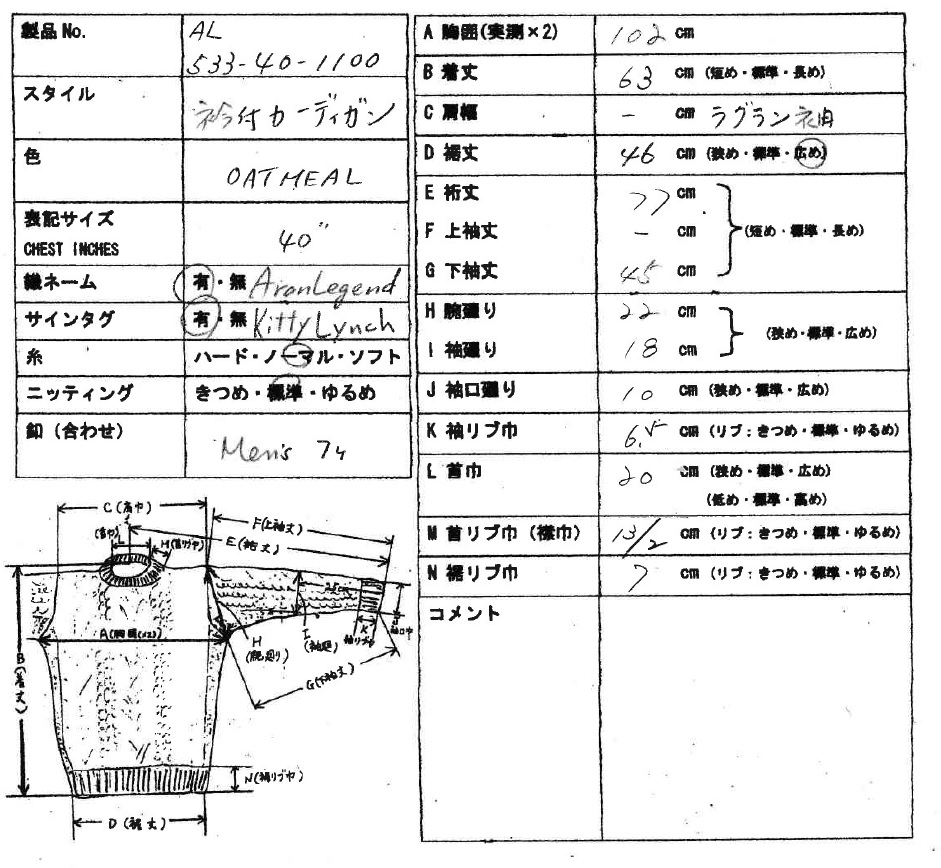 製品No.
AL
533-40-1100
スタイル
衿付カーディガン
色
OATMEAL
表記サイズ
CHEST INCHES
40"
織ネーム
有・無 AranLegend
サインタグ
有・無 Kitty Lynch
糸
ハード・ノーマル・ソフト
ニッティング
きつめ・標準・ゆるめ
釦（合わせ）
Men's 7ヶ
A 胸囲(実測×2) 102 cm
B 着丈 63 cm (短め・標準・長め)
C 肩幅 - cm ラグラン袖
D 裾丈 46 cm (狭め・標準・広め)
E 裄丈 77 cm
F 上袖丈 - cm (短め・標準・長め)
G 下袖丈 45 cm
H 腕廻り 22 cm
I 袖廻り 18 cm (狭め・標準・広め)
J 袖口廻り 10 cm (狭め・標準・広め)
K 袖リブ巾 6.5 cm (リブ：きつめ・標準・ゆるめ)
L 首巾 20 cm (狭め・標準・広め)
(低め・標準・高め)
M 首リブ巾（襟巾） 13/2 cm (リブ：きつめ・標準・ゆるめ)
N 裾リブ巾 7 cm (リブ：きつめ・標準・ゆるめ)
コメント
C(肩巾)
F(上袖丈)
E(裄丈)
L
(首巾)
M(首リブ巾)
A(胸囲(×2))
B(着丈)
H
(腕廻り)
I
(袖廻)
K
袖リブ巾
J
袖口巾
G(下袖丈)
N(裾リブ巾)
D(裾丈)